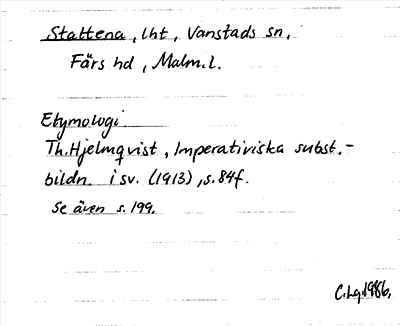 Stattena, lht, Vanstads sn,
Färs hd, Malm.l.
Etymologi
Th. Hjelmqvist, Imperativiska subst.-
bildn. i sv. (1913), s. 84f.
Se även s. 199.
C.Lg. 1986.